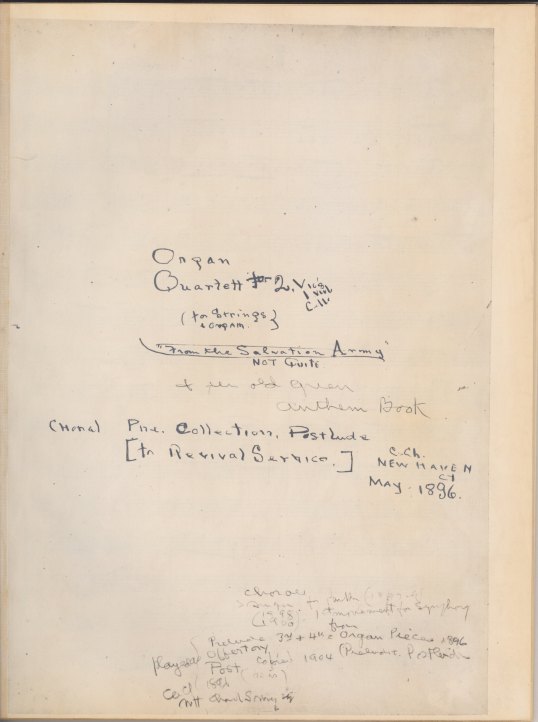 Organ
Quartett for 2 Vios
1 viol
C-ll.
(for Strings
& organ.)
"From the Salvation Army"
NOT Quite
old Green
Anthem Book
(Hora) Pre. Collection, Postlude
[to Revival Service.]
C. Ch.
NEW HAVEN
CT
May. 1896.
Choral
1898
(1900)
movement for Symphony
from
Prelude 3rd + 4th Organ Pieces 1896
Offertory
played
Post copied 1904 (Prelude, Postlude